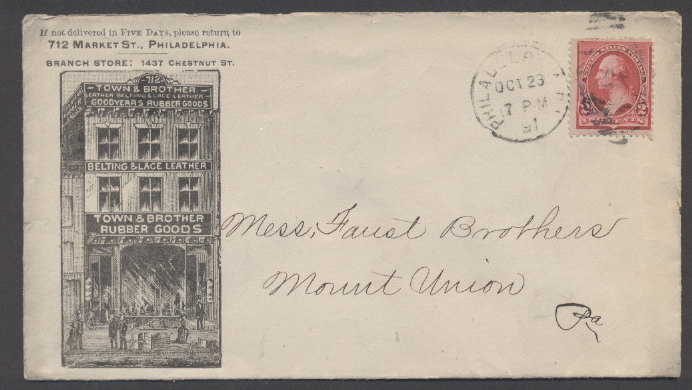 If not delivered in FIVE DAYS, please return to
712 MARKET ST., PHILADELPHIA.
BRANCH STORE: 1437 CHESTNUT ST.
712
TOWN & BROTHER
LEATHER BELTING & LACE LEATHER
GOODYEARS RUBBER GOODS
BELTING & LACE LEATHER
TOWN & BROTHER
RUBBER GOODS
PHILADELPHIA
OCT 23
7 PM
91
2 2
Mess, Faust Brothers
Mount Union
Pa